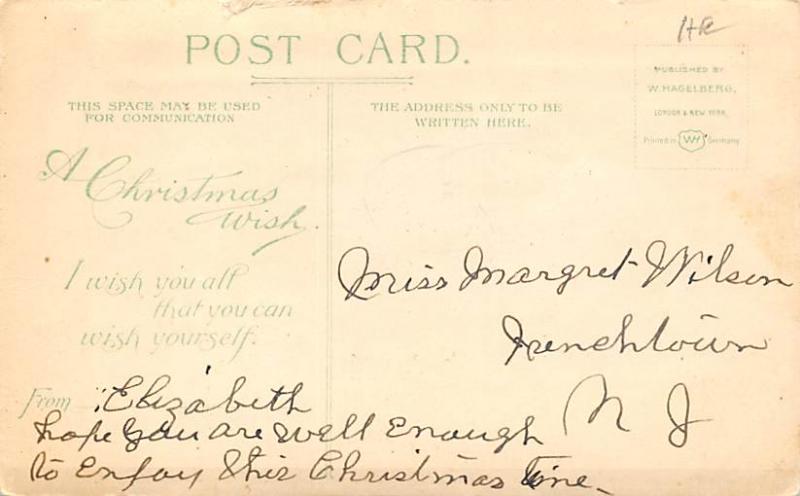 POST CARD.
THIS SPACE MAY BE USED
FOR COMMUNICATION
THE ADDRESS ONLY TO BE
WRITTEN HERE.
PUBLISHED BY
W. HAGELBERG,
LONDON & NEW YORK,
Printed in WH Germany
A Christmas
Wish.
I wish you all
that you can
wish yourself.
Miss Margret Wilson
Frenchtown
N J
From Elizabeth
hope you are well enough
to enjoy this Christmas time